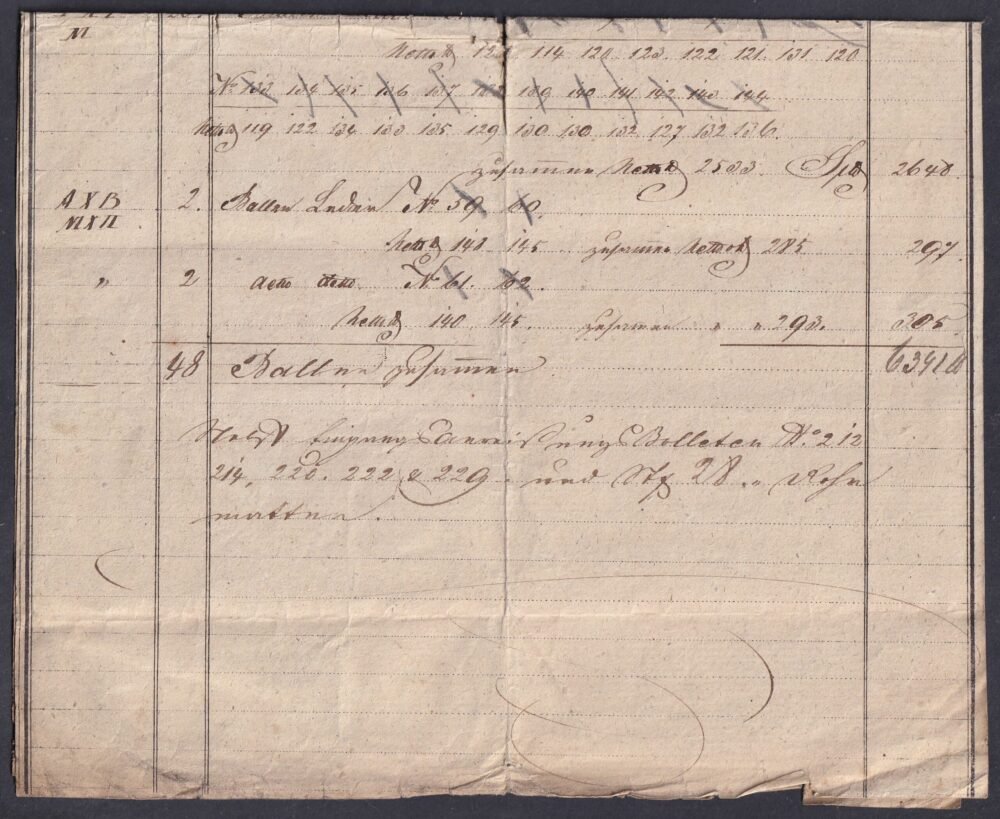 M
Netto ℔ 121 114 120 123. 122 121. 131. 120
No. 133 134 135 136 137 138 139 140 141 142 143 144
Netto ℔ 119 122 134 133 135 129 130 130 132 127 132 136.
zusammen Netto ℔ 2533. Sp℔ 2648
A X B 2. Ballen Leder No 59 60.
M X II
Netto ℔ 141 145 zusammen Netto ℔ 285 297.
" 2 detto detto No 61. 62.
Netto ℔ 140 145. zusammen " " 293. 305.
48 Ballen zusammen 6391 ℔
Nebst Eingangs Bolleten No 212
214, 220. 222 & 229. und Stk 28. " Rohr
matten.